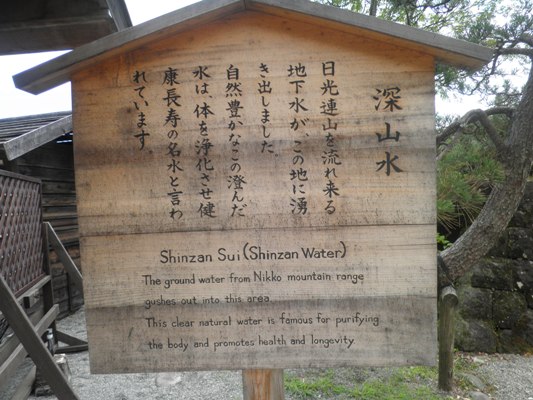 深山水
日光連山を流れ来る
地下水が、この地に湧
き出しました
自然豊かなこの澄んだ
水は、体を浄化させ健
康長寿の名水と言わ
れています
Shinzan Sui (Shinzan Water)
The ground water from Nikko mountain range
gushes out into this area
This clear natural water is famous for purifying
the body and promotes health and longevity.